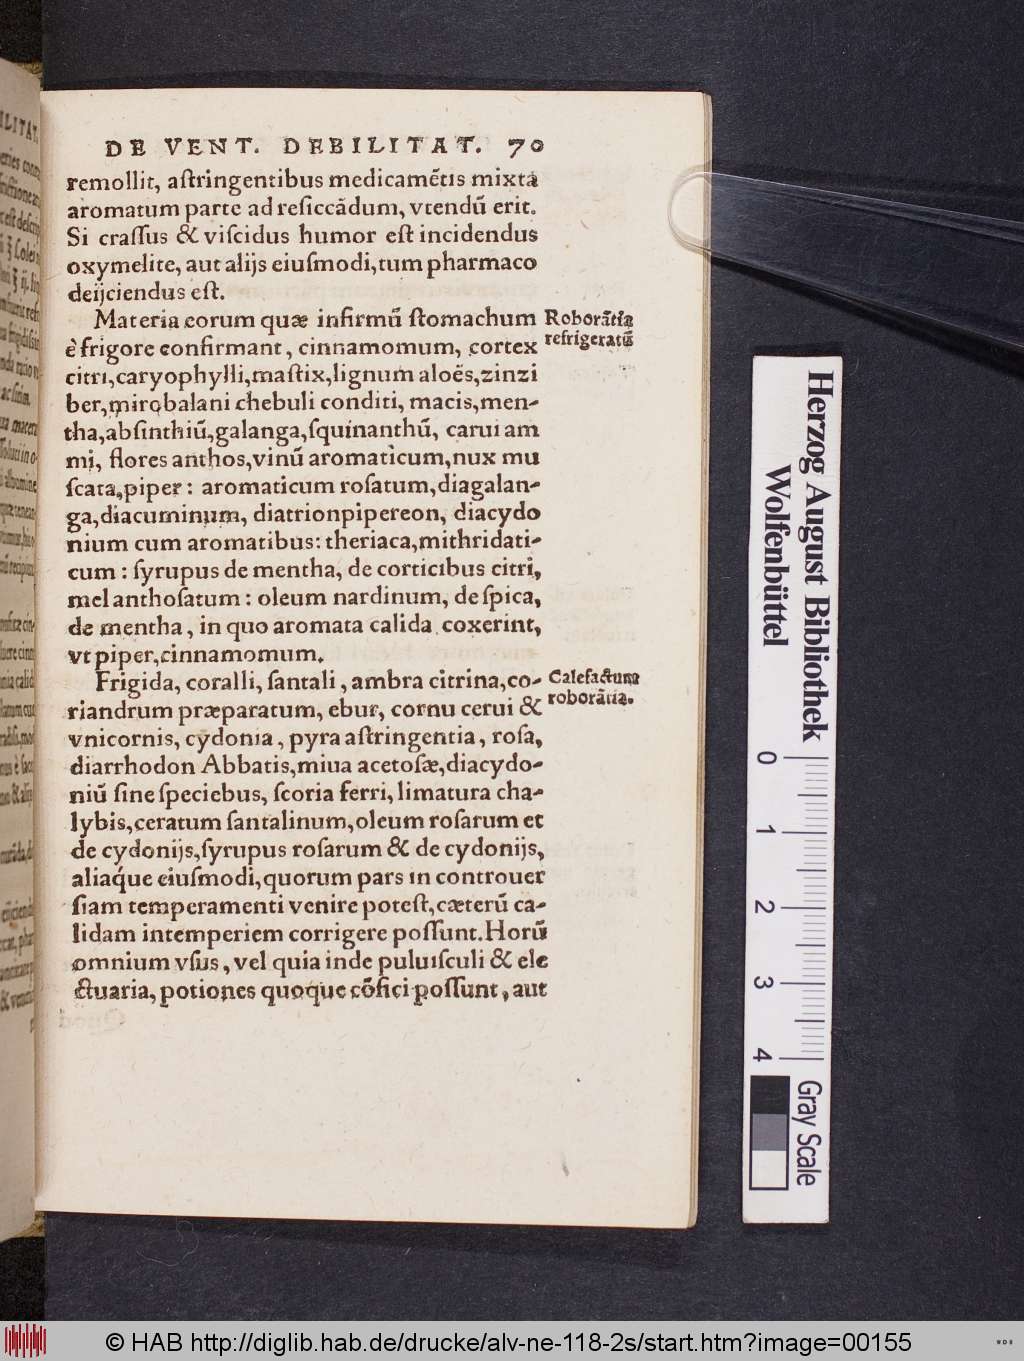 DE VENT. DEBILITAT. 70
remollit, aſtringentibus medicamẽtis mixta
aromatum parte ad reſiccãdum, vtendũ erit.
Si craſſus & viſcidus humor eſt incidendus
oxymelite, aut alijs eiuſmodi, tum pharmaco
deijciendus eſt.
Materia eorum quæ infirmũ ſtomachum
è frigore confirmant, cinnamomum, cortex
citri, caryophylli, maſtix, lignum aloës, zinzi
ber, mirobalani chebuli conditi, macis, men-
tha, abſinthiũ, galanga, ſquinanthũ, carui am
mi, flores anthos, vinũ aromaticum, nux mu
ſcata, piper: aromaticum roſatum, diagalan-
ga, diacuminum, diatrionpipereon, diacydo
nium cum aromatibus: theriaca, mithridati-
cum: ſyrupus de mentha, de corticibus citri,
mel anthoſatum: oleum nardinum, de ſpica,
de mentha, in quo aromata calida coxerint,
vt piper, cinnamomum.
Frigida, coralli, ſantali, ambra citrina, co-
riandrum præparatum, ebur, cornu cerui &
vnicornis, cydonia, pyra aſtringentia, roſa,
diarrhodon Abbatis, miua acetoſæ, diacydo-
niũ ſine ſpeciebus, ſcoria ferri, limatura cha-
lybis, ceratum ſantalinum, oleum roſarum et
de cydonijs, ſyrupus roſarum & de cydonijs,
aliaq́ue eiuſmodi, quorum pars in controuer
ſiam temperamenti venire poteſt, cæterũ ca-
lidam intemperiem corrigere poſſunt. Horũ
omnium vſus, vel quia inde puluiſculi & ele
ctuaria, potiones quoque cõfici poſſunt, aut
Roborãtia
refrigeratũ
Calefactum
roborãtia.
Herzog August Bibliothek
Wolfenbüttel
0 1 2 3 4
Gray Scale
© HAB http://diglib.hab.de/drucke/alv-ne-118-2s/start.htm?image=00155